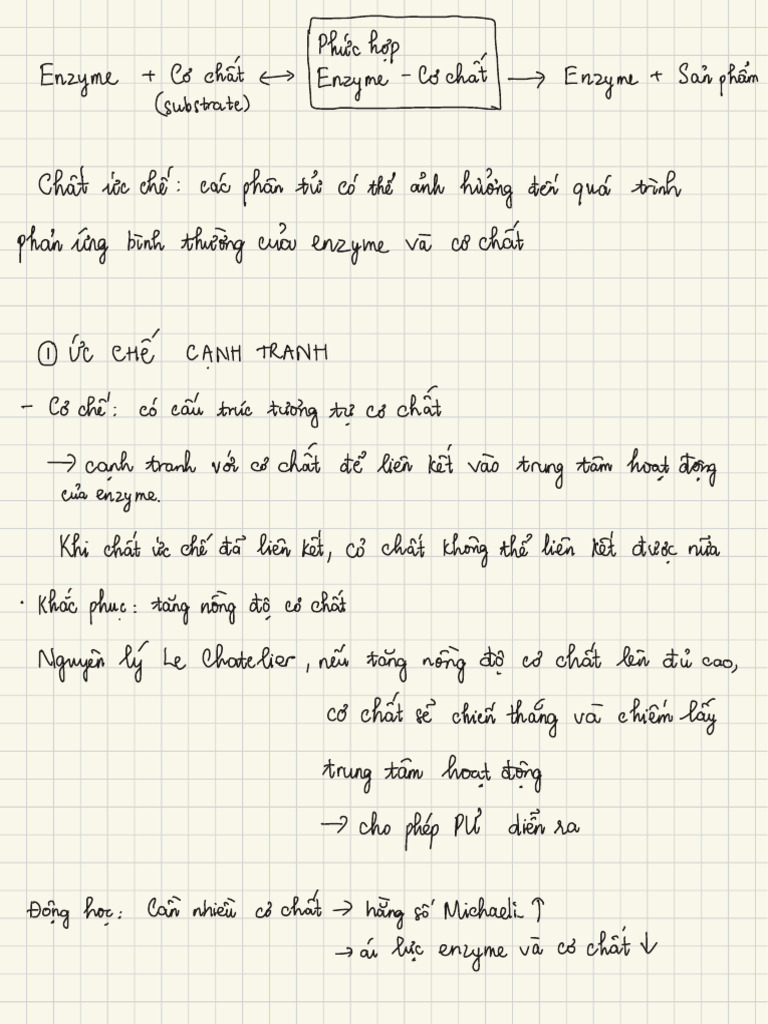 Phức hợp
Enzyme + Cơ chất ⟷ Enzyme - Cơ chất ⟶ Enzyme + Sản phẩm
(substrate)
Chất ức chế: các phân tử có thể ảnh hưởng đến quá trình
phản ứng bình thường của enzyme và cơ chất
① ỨC CHẾ CẠNH TRANH
- Cơ chế: có cấu trúc tương tự cơ chất
→ cạnh tranh với cơ chất để liên kết vào trung tâm hoạt động
của enzyme.
Khi chất ức chế đã liên kết, cơ chất không thể liên kết được nữa
· Khắc phục: tăng nồng độ cơ chất
Nguyên lý Le Chatelier, nếu tăng nồng độ cơ chất lên đủ cao,
cơ chất sẽ chiến thắng và chiếm lấy
trung tâm hoạt động
→ cho phép PƯ diễn ra
Động học: Cần nhiều cơ chất → hằng số Michaeli ↑
→ ái lực enzyme và cơ chất ↓